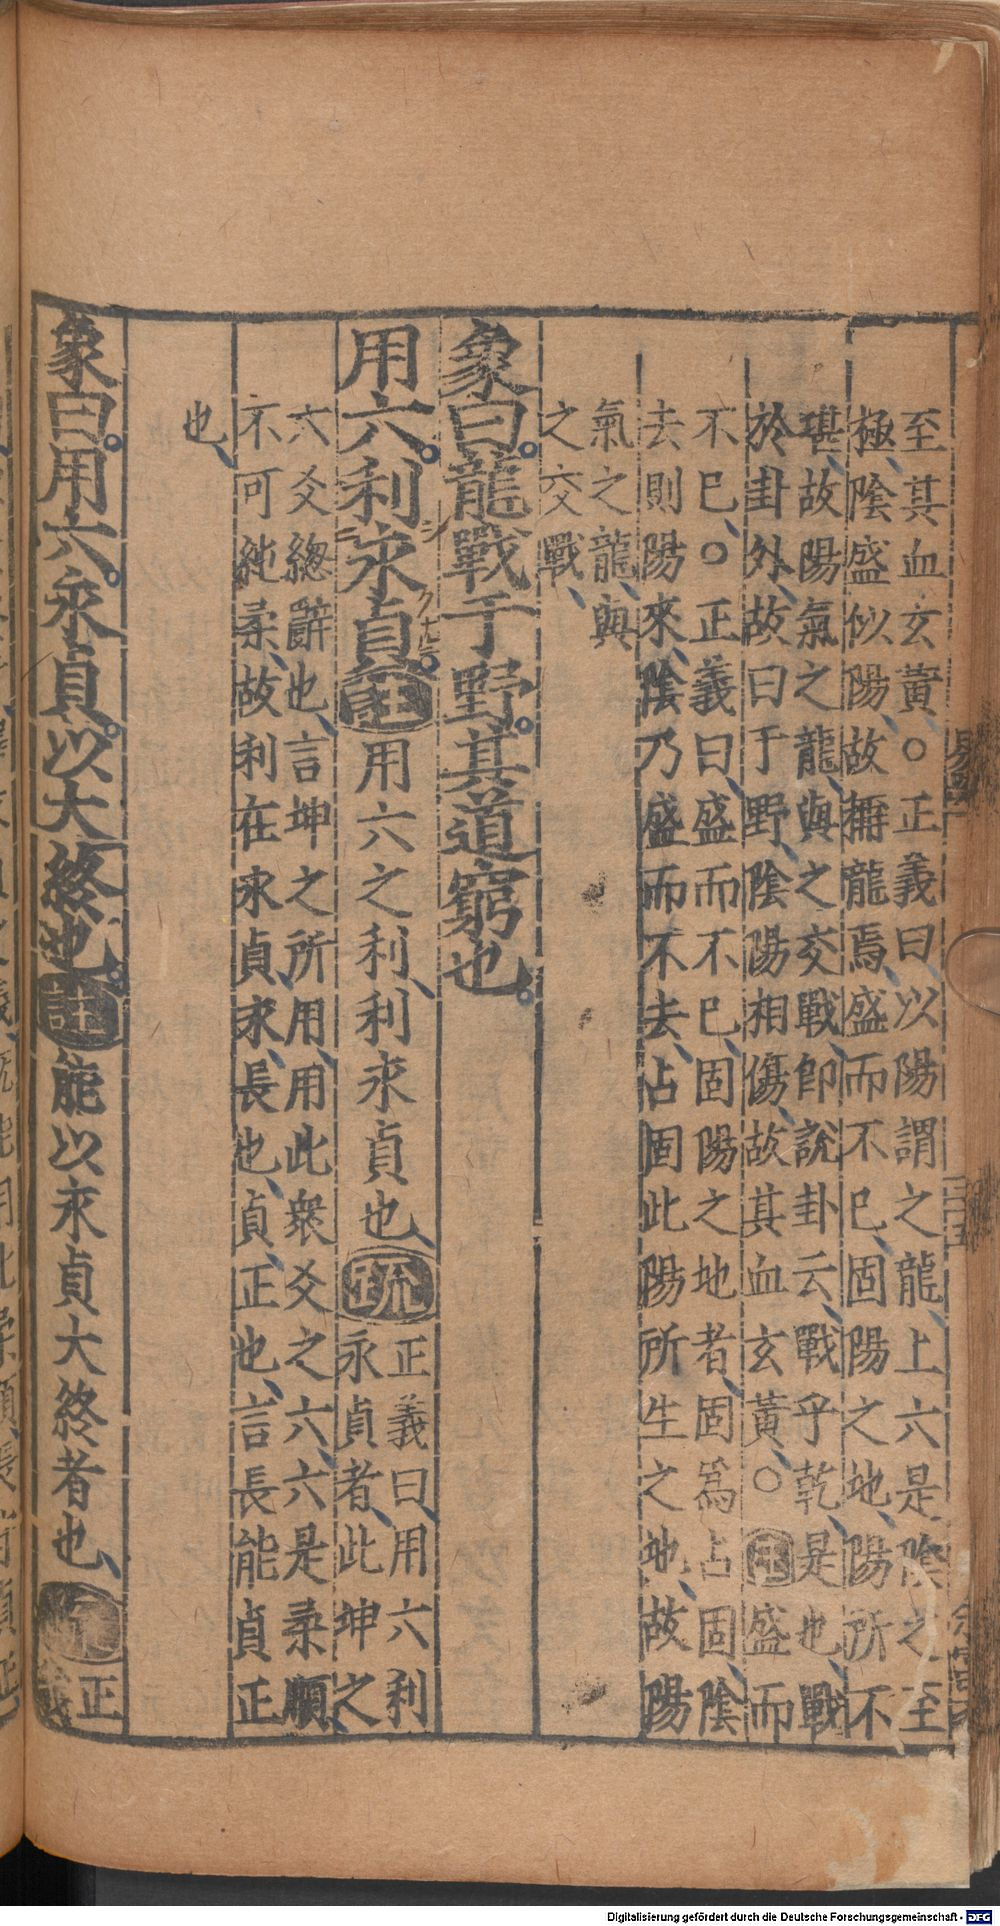 至其血玄黃○正義曰以陽謂之龍上六是陰之至
極陰盛似陽故稱龍焉盛而不已固陽之地陽所不
堪故陽氣之龍與之交戰即說卦云戰乎乾是也戰
於卦外故曰于野陰陽相傷故其血玄黃○註盛而
不已○正義曰盛而不已固陽之地者固爲占固陰
去則陽來陰乃盛而不去占固此陽所生之地故陽
氣之龍與
之交戰
象曰龍戰于野其道窮也
用六利永貞註用六之利利永貞也疏正義曰用六利
永貞者此坤之
六爻緫辭也言坤之所用用此衆爻之六六是柔順
不可純柔故利在永貞永長也貞正也言長能貞正
也
象曰用六永貞以大終也註能以永貞大終者也疏正
義
二十五
Digitalisierung gefördert durch die Deutsche Forschungsgemeinschaft - DFG